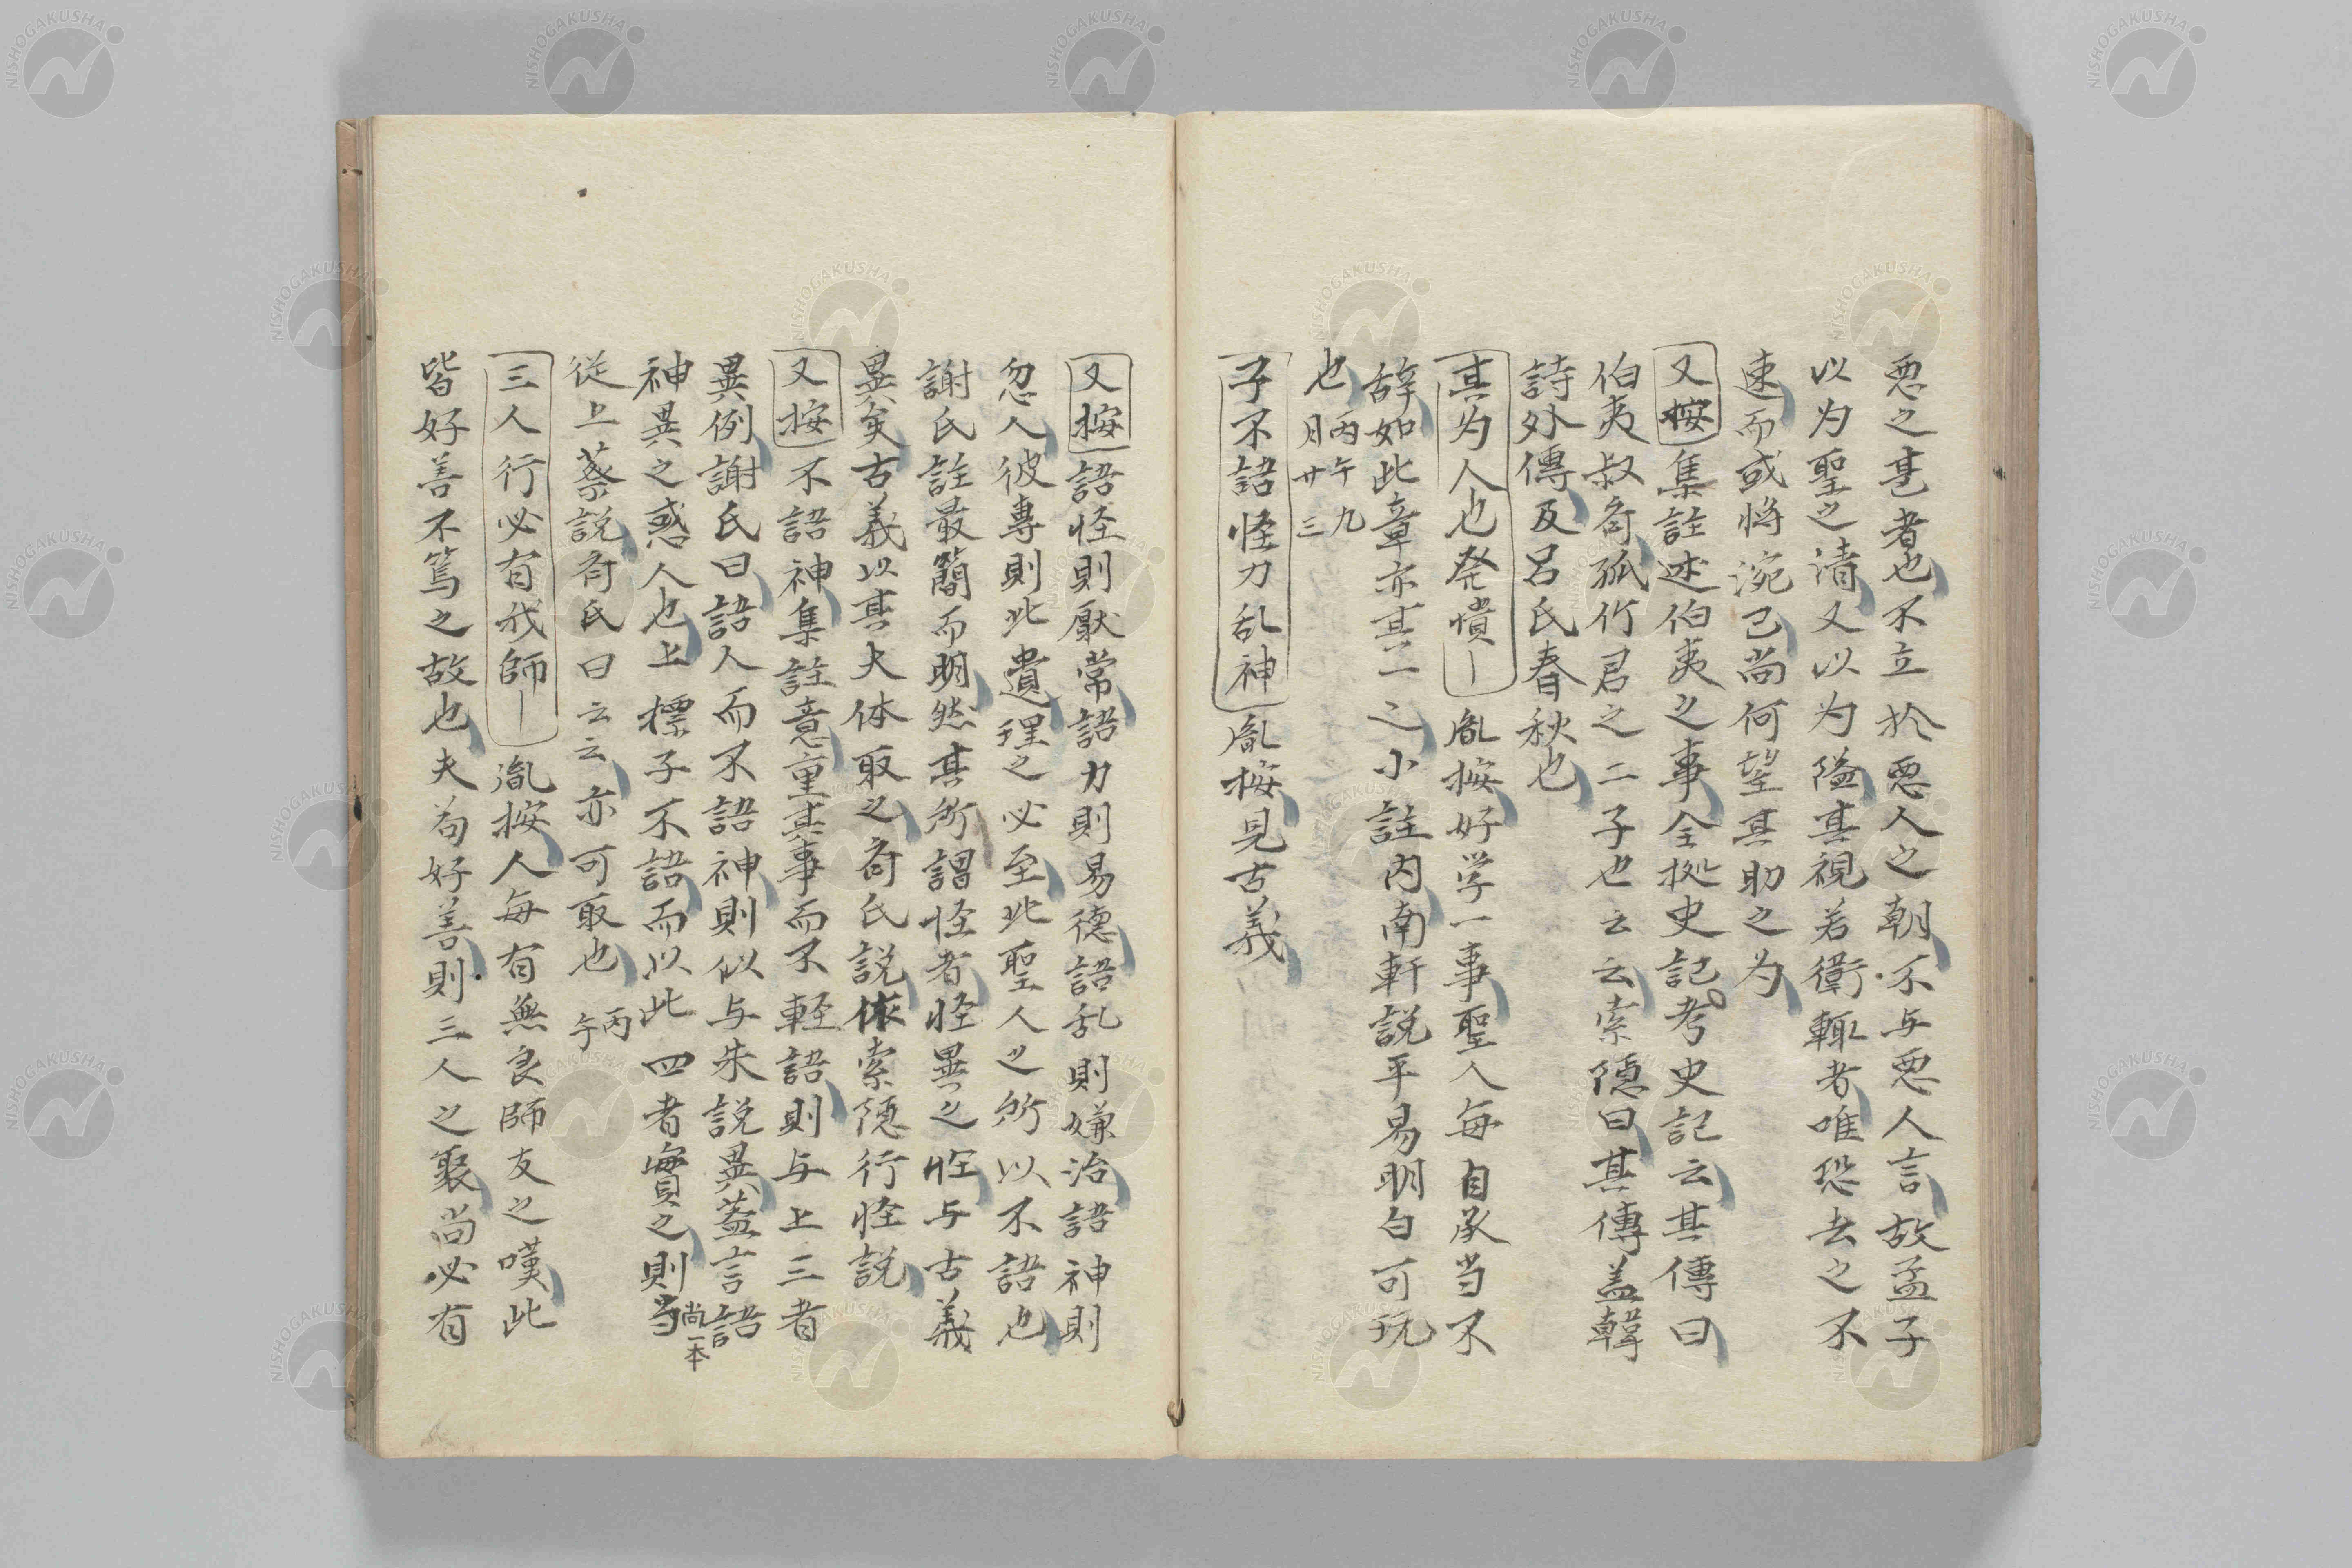 悪之甚者也不立於悪人之朝不与悪人言故孟子
以为聖之清又以为隘其視若衛輒者唯恐去之不
速而或将浼己尚何望其助之为
又按集註述伯夷之事全拠史記考史記云其傳曰
伯夷叔斉孤竹君之二子也云云索隠曰其傳盖韓
詩外傳及呂氏春秋也
其为人也発憤｜胤按好学一事聖人每自承当不
辞如此章亦其一之小註内南軒説平易明白可玩
也丙午九
月廿三
子不語怪力乱神胤按見古義
又按語怪則厭常語力則易德語乱則嫌治語神則
忽人彼專則此遺理之必至此聖人之所以不語也
謝氏註最簡而明然其所謂怪者怪異之怪与古義
異矣古義以其大体取之斉氏説依索隠行怪説
又按不語神集註意重其事而不軽語則与上三者
異例謝氏曰語人而不語神則似与朱説異蓋言語
神異之惑人也上標子不語而以此四者實之則当
尚一本
従上蔡説斉氏曰云云亦可取也丙
午
三人行必有我師｜胤按人每有無良師友之嘆此
皆好善不篤之故也夫苟好善則三人之聚尚必有
NISHOGAKUSHA